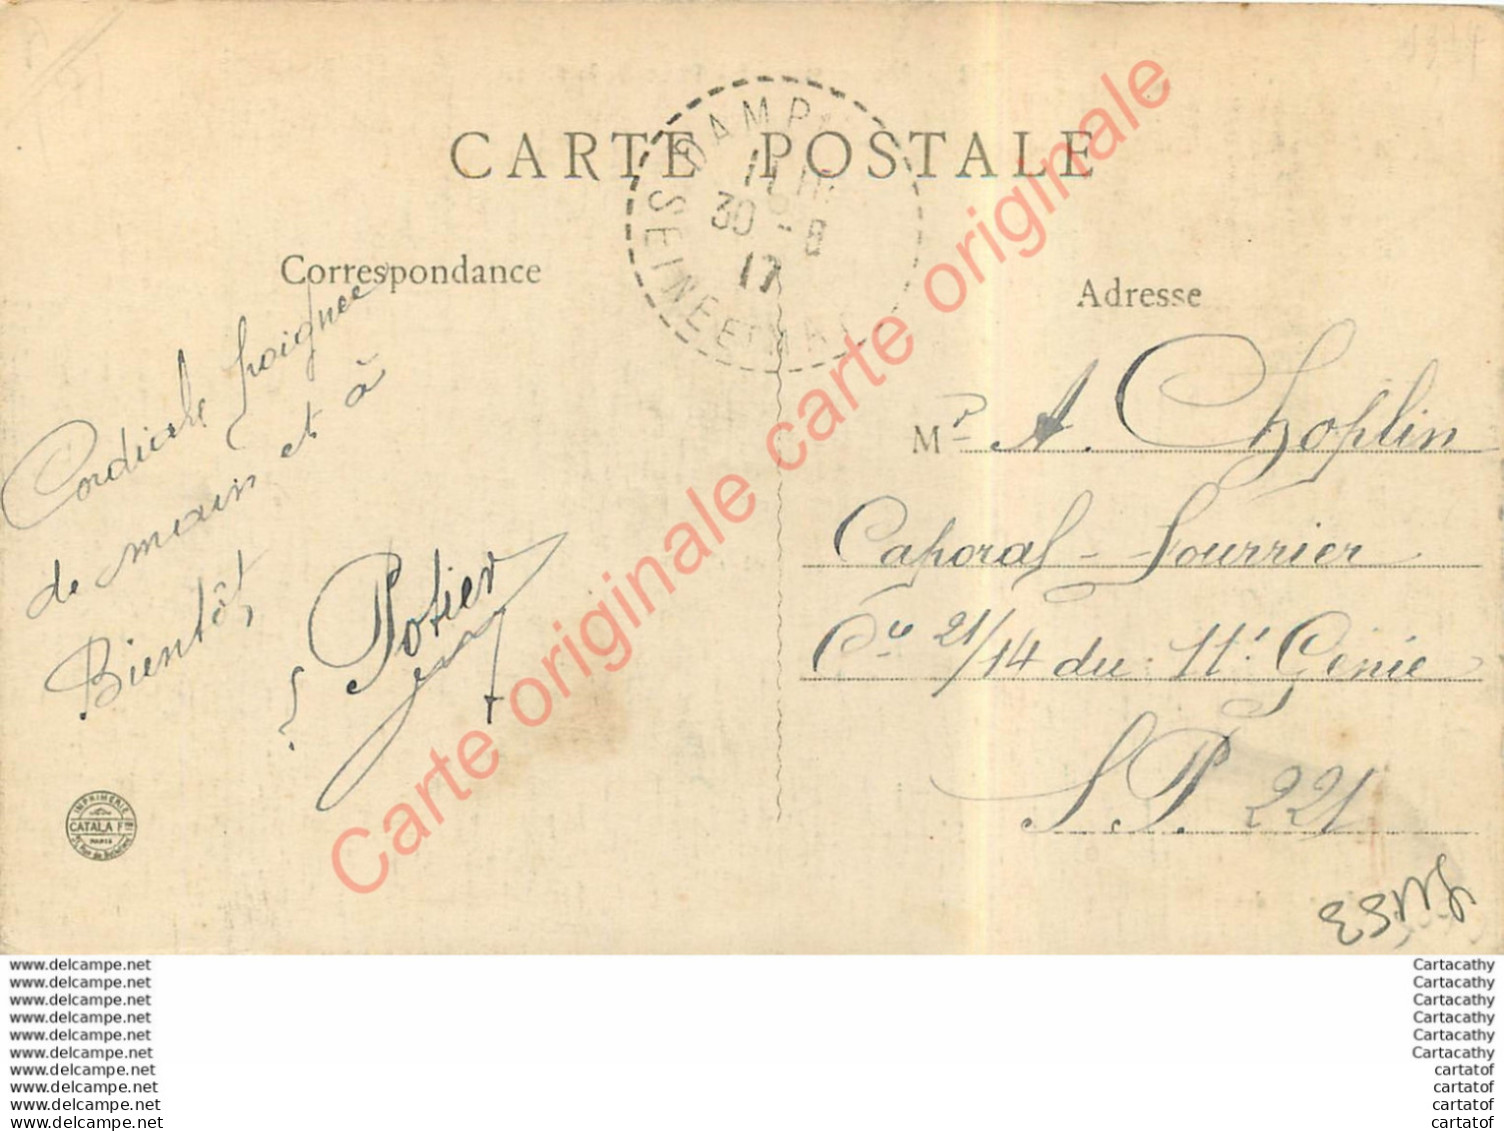 CARTE POSTALE
DAMP
11
30 - 8
17
SEINE ET M
Correspondance
Cordiale poignée
de main et à
Bientôt,
Potier
Adresse
Mr A. Choplin
Caporal-Fourrier
Cie 21/14 du 11e Génie
S.P. 221
IMPRIMERIE
CATALA Fres
PARIS
Carte originale carte originale
www.delcampe.net
www.delcampe.net
www.delcampe.net
www.delcampe.net
www.delcampe.net
www.delcampe.net
www.delcampe.net
www.delcampe.net
www.delcampe.net
www.delcampe.net
Cartacathy
Cartacathy
Cartacathy
Cartacathy
Cartacathy
Cartacathy
cartatof
cartatof
cartatof
cartatof